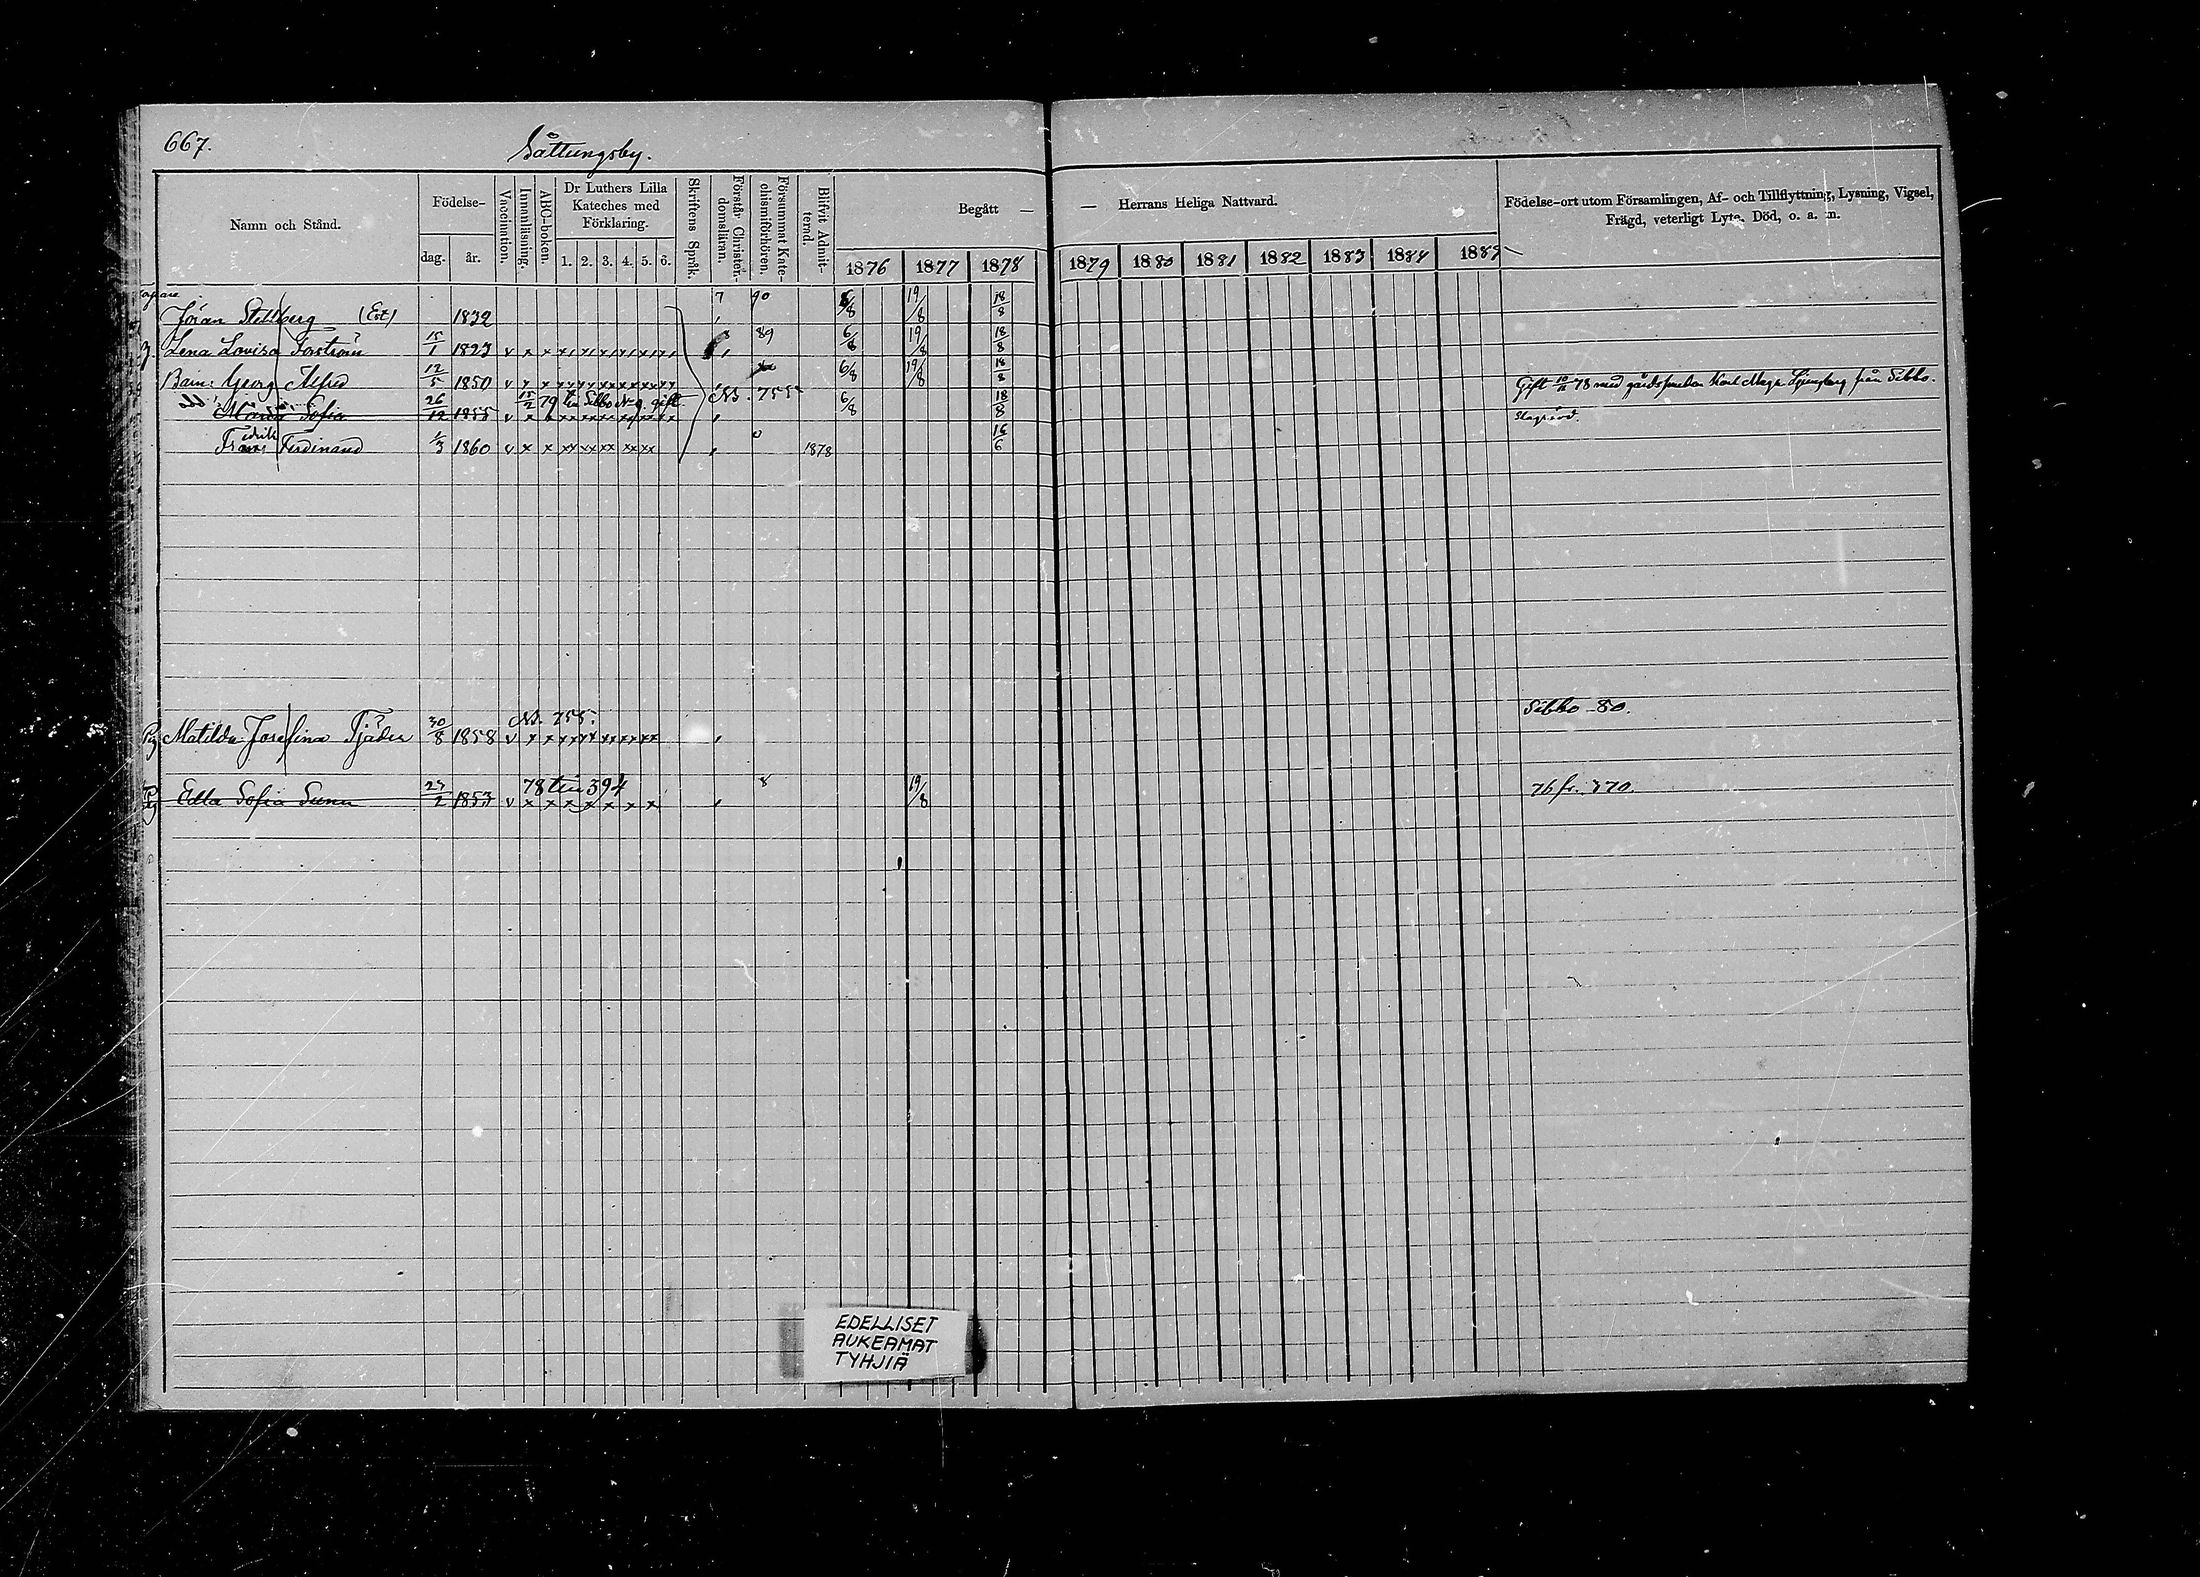 667.
Såttungsby.
Namn och Stånd.
Födelse-
dag.
år.
Vaccination.
Innanläsning.
ABC-boken.
Dr Luthers Lilla
Kateches med
Förklaring.
1. 2. 3. 4. 5. 6.
Skriftens Språk.
Förstår Christen-
domsläran.
Försummat Kate-
chismiförhören.
Blifvit Admit-
terad.
Begått —
— Herrans Heliga Nattvard.
1876 1877 1878 1879 1880 1881 1882 1883 1884 1885
Födelse-ort utom Församlingen, Af- och Tillflyttning, Lysning, Vigsel,
Frägd, veterligt Lyte, Död, o. a. m.
Jöran Stellberg 1832 7 90 6/8 19/8 18/8
Lena Lovisa Forström 15/1 1823 v x x 89 6/8 19/8 18/8
Barn: Georg Alfred 12/5 1850 v x x 6/8 19/8 18/8
N. 755
Gift 10/11 78 med
från Sibbo.
15/2 79 till Sibbo gift
Sofia 26/12 1855 v x x 6/8 18/8
Fredrik
Frans Ferdinand 1/3 1860 v x x 0 1878 16/6
N. 755.
Sibbo 80.
Matilda Josefina Tjäder 30/8 1858 v x x
78 till 394
8
19/8
76 fr. 370.
Edla Sofia 23/2 1853 v x x x x x x x
EDELLISET
AUKEAMAT
TYHJIÄ